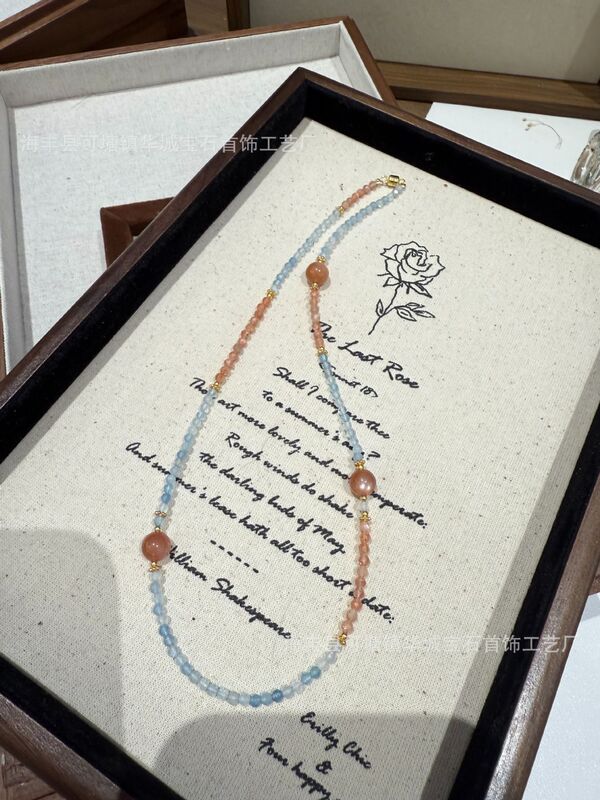 海丰县可塘镇华城宝石首饰工艺厂
The Last Rose
Shall I compare thee
to a summer's day?
Thou art more lovely and more temperate:
Rough winds do shake
the darling buds of May,
And summer's lease hath all too short a date:
------
William Shakespeare
海丰县可塘镇华城宝石首饰工艺厂
Erilly Chic
&
Four happy